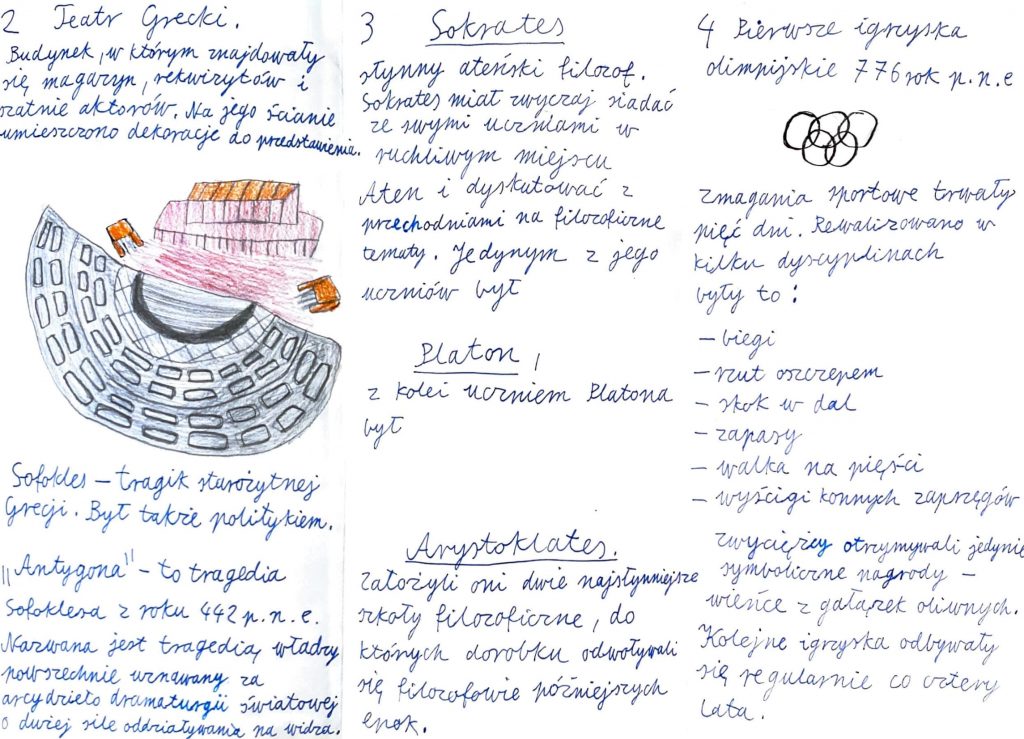 2 Teatr Grecki.
Budynek, w którym znajdowały
się magazyn, rekwizytów i
szatnie aktorów. Na jego ścianie
umieszczono dekoracje do przedstawienia.
Sofokles – tragik starożytnej
Grecji. Był także politykiem.
"Antygona" – to tragedia
Sofoklesa z roku 442 p.n.e.
Nazwana jest tragedią władzy
powszechnie uznawany za
arcydzieło dramaturgii światowej
o dwiej sile oddziaływania na widza.
3 Sokrates
słynny ateński filozof.
Sokrates miał zwyczaj siadać
ze swymi uczniami w
ruchliwym miejscu
Aten i dyskutować z
przechodniami na filozoficzne
tematy. Jedynym z jego
uczniów był
Platon,
z kolei uczniem Platona
był
Arystoklates.
Założyli oni dwie najsłynniejsze
szkoły filozoficzne, do
których dorobku odwoływali
się filozofowie późniejszych
epok.
4 Pierwsze igrzyska
olimpijskie 776 rok p.n.e
Zmagania sportowe trwały
pięć dni. Rewalizowano w
kilku dyscyplinach
były to:
– biegi
– rzut oszczepem
– skok w dal
– zapasy
– walka na pięści
– wyścigi konnych zaprzęgów
Zwycięzcy otrzymywali jedynie
symboliczne nagrody –
wieńce z gałązek oliwnych.
Kolejne igrzyska odbywały
się regularnie co cztery
lata.